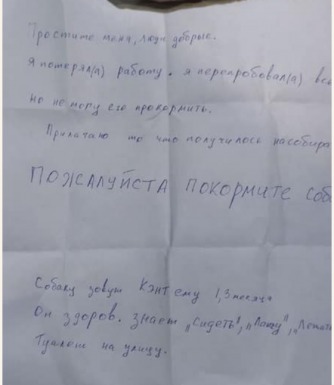 Простите меня, люди добрые.
Я потерял(а) работу. я перепробовал(а) все
но не могу его прокормить.
Прилагаю то что получилось насобира
ПОЖАЛУЙСТА ПОКОРМИТЕ СОБ
Собаку зовут Кэнт ему 1,3 месяца
Он здоров. Знает "Сидеть", "Лапу",
Туалет на улицу.